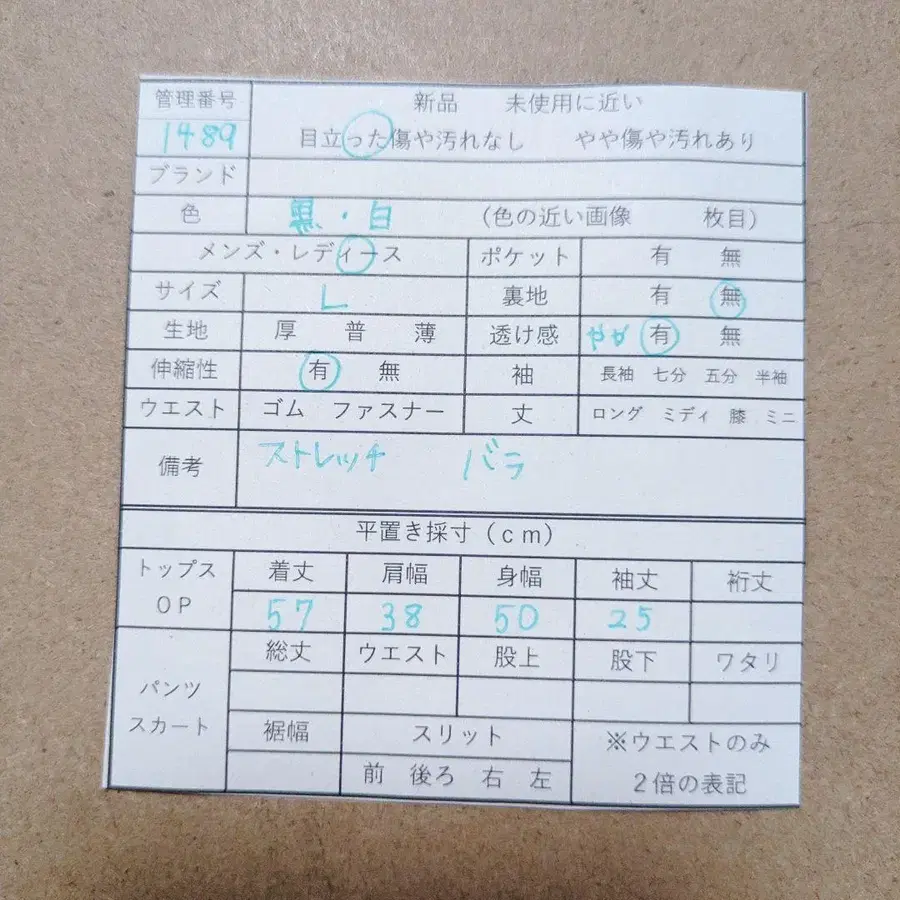 管理番号 新品 未使用に近い
1489 目立った傷や汚れなし やや傷や汚れあり
ブランド
色 黒・白 (色の近い画像 枚目)
メンズ・レディース ポケット 有 無
サイズ L 裏地 有 無
生地 厚 普 薄 透け感 やや 有 無
伸縮性 有 無 袖 長袖 七分 五分 半袖
ウエスト ゴム ファスナー 丈 ロング ミディ 膝 ミニ
備考 ストレッチ バラ
平置き採寸(cm)
トップス 着丈 肩幅 身幅 袖丈 裄丈
OP 57 38 50 25
総丈 ウエスト 股上 股下 ワタリ
パンツ
スカート 裾幅 スリット ※ウエストのみ
前 後ろ 右 左 2倍の表記